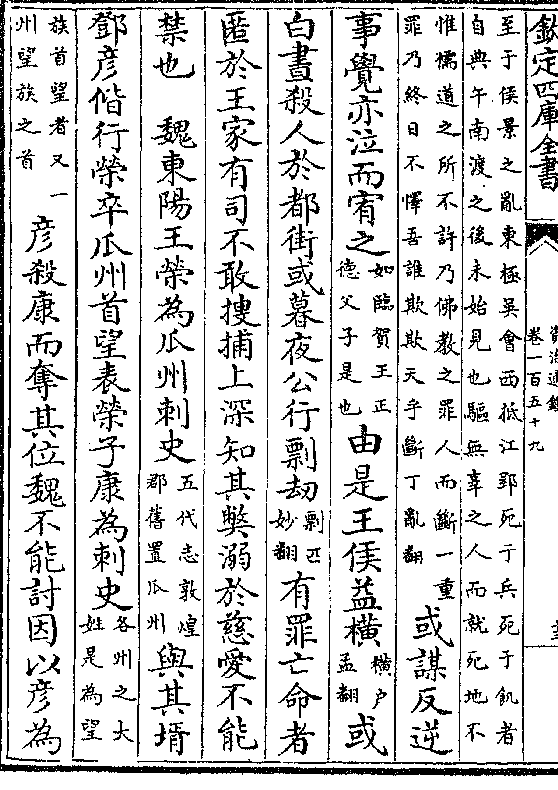 欽定四庫全書
資治通鑑
卷一百五十九
至于侯景之亂東極吳會西抵江郢死于兵死于飢者
自典午南渡之後未始見也驅無辜之人而就死地不
惟儒道之所不許乃佛教之罪人而斷一重
罪乃終日不懌吾誰欺欺天乎斷丁亂翻
或謀反逆
事覺亦泣而宥之
如臨賀王正
德父子是也
由是王侯益橫
橫户
孟翻
或
白晝殺人於都街或暮夜公行剽劫
剽匹
妙翻
有罪亡命者
匿於王家有司不敢搜捕上深知其弊溺於慈愛不能
禁也 魏東陽王榮為瓜州刺史
五代志敦煌
郡舊置瓜州
與其壻
鄧彦偕行榮卒瓜州首望表榮子康為刺史
各州之大
姓是為望
族首望者又一
州望族之首
彦殺康而奪其位魏不能討因以彦為